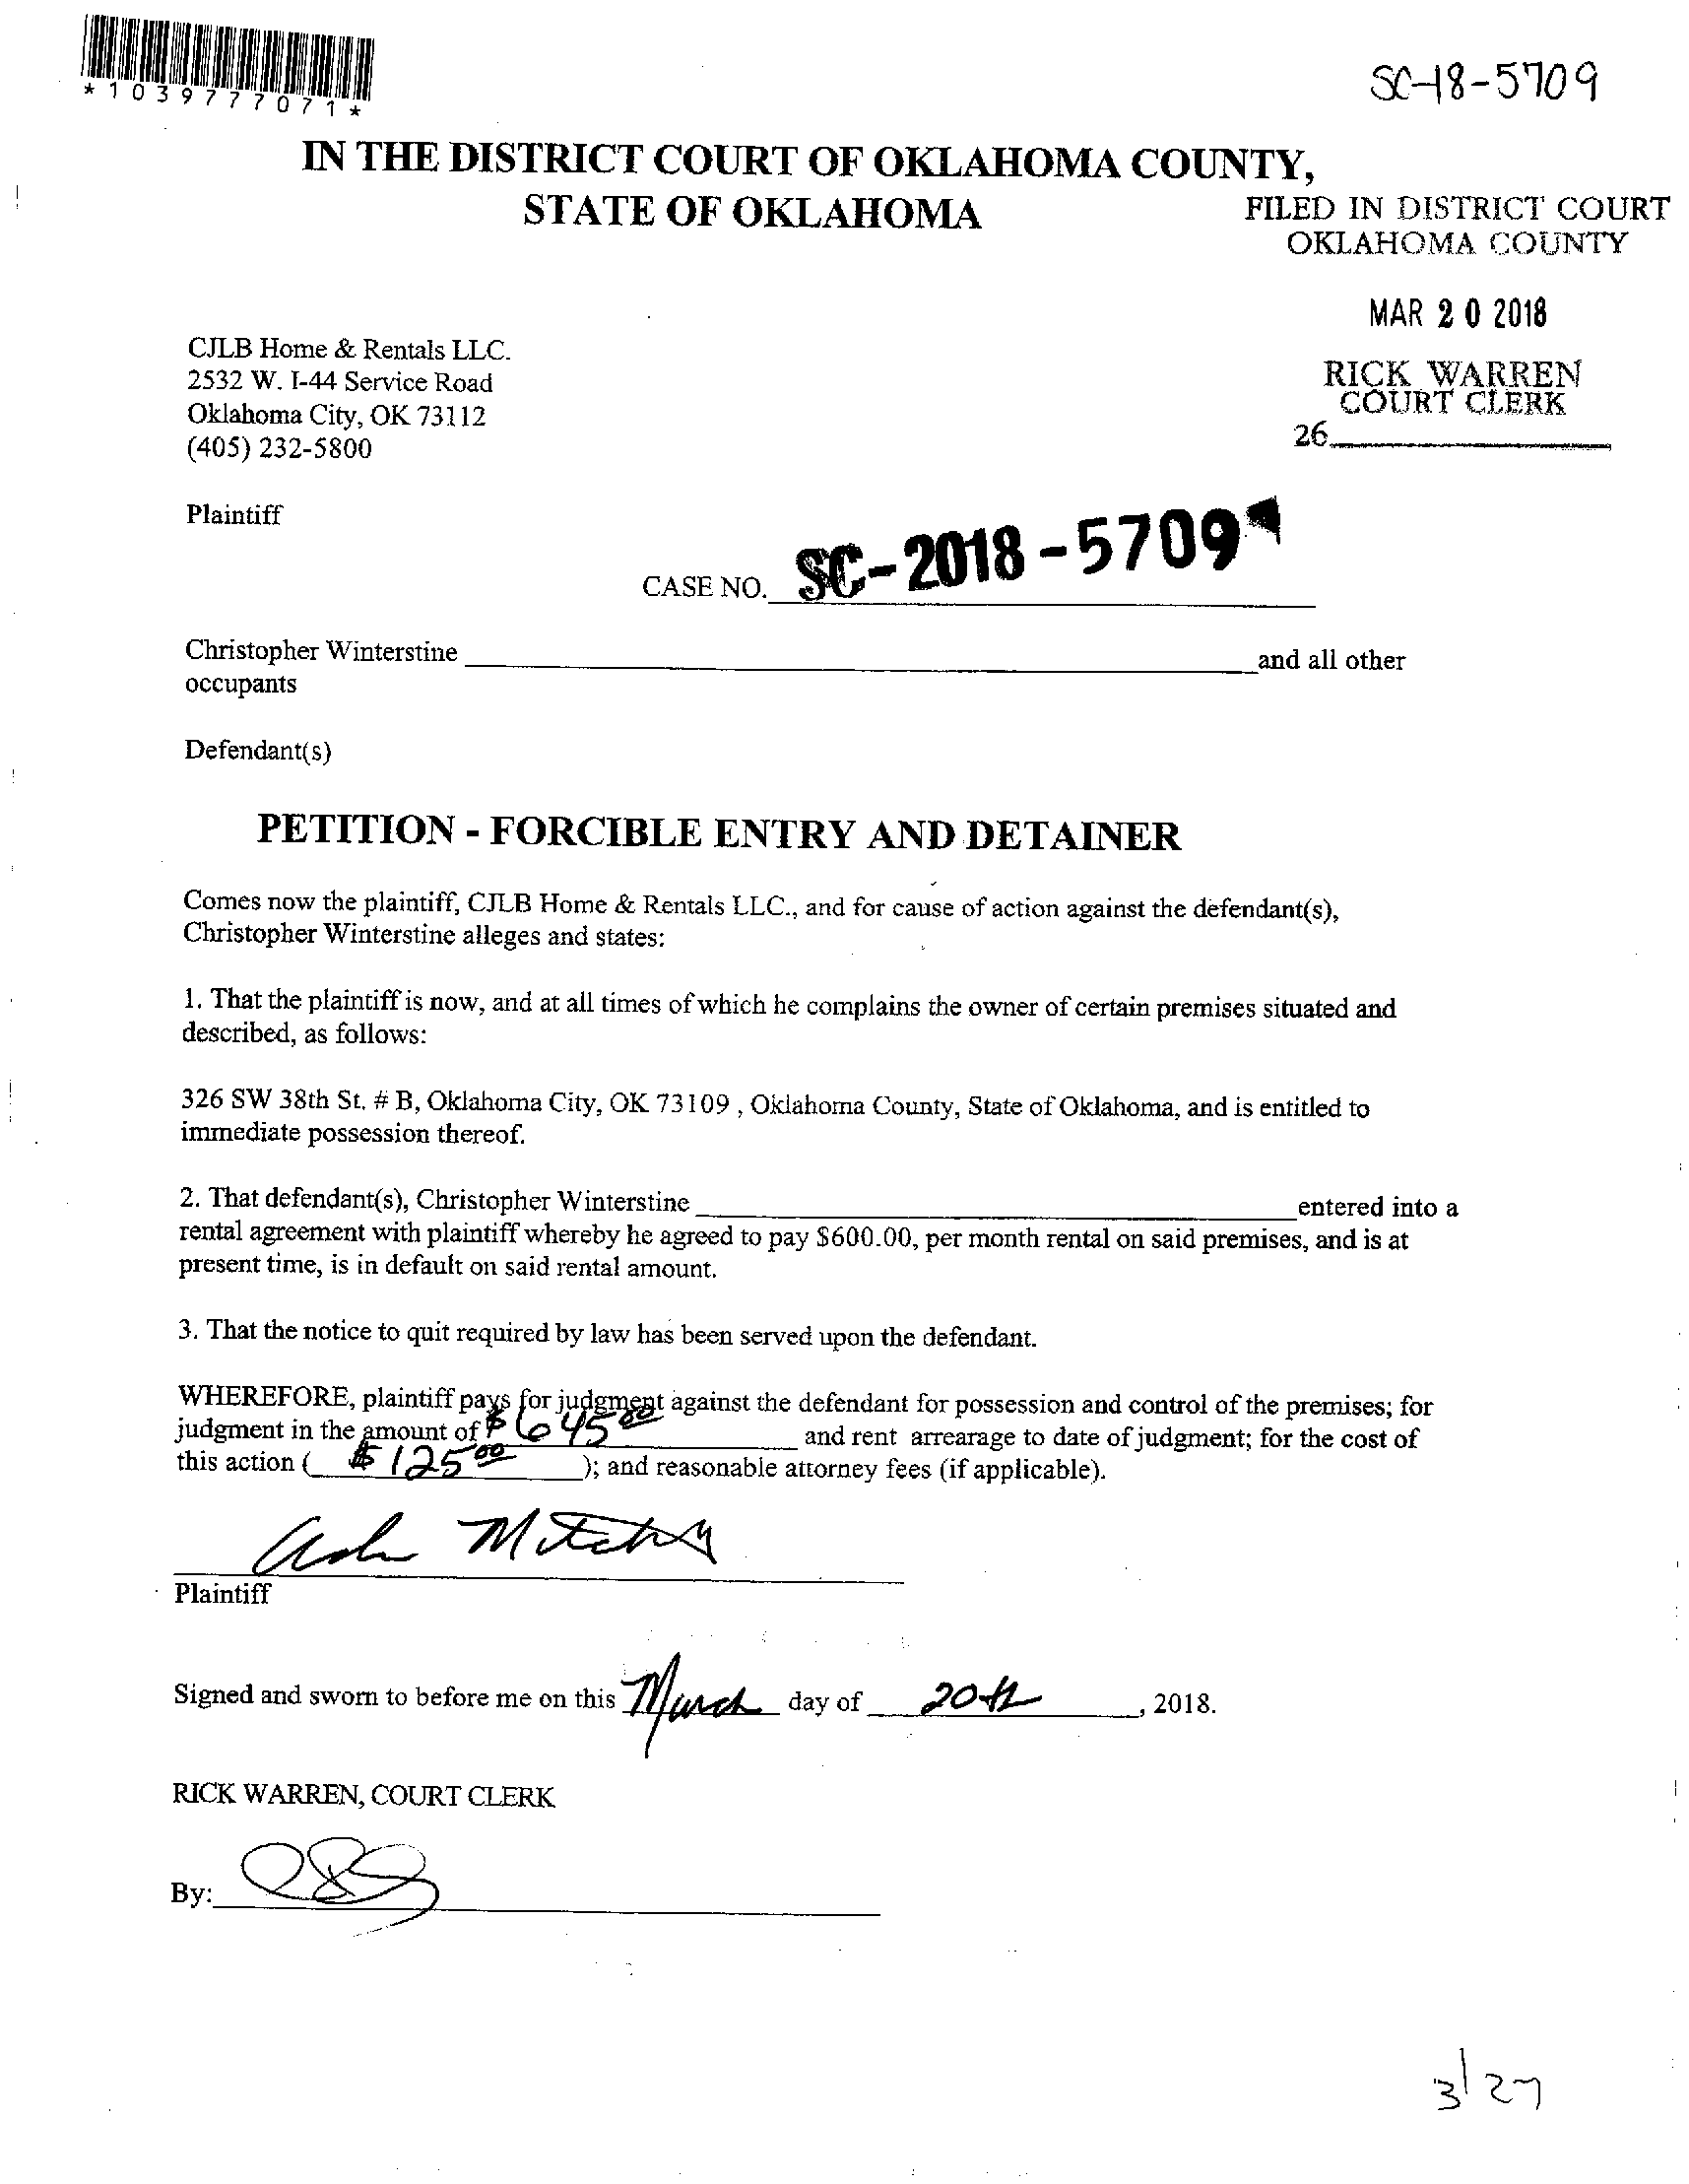 *1039777071*
SC-18-5709
IN THE DISTRICT COURT OF OKLAHOMA COUNTY,
STATE OF OKLAHOMA
FILED IN DISTRICT COURT
OKLAHOMA COUNTY
MAR 20 2018
RICK WARREN
COURT CLERK
26
CJLB Home & Rentals LLC.
2532 W. I-44 Service Road
Oklahoma City, OK 73112
(405) 232-5800
Plaintiff
CASE NO. SC-2018-5709
Christopher Winterstine and all other
occupants
Defendant(s)
PETITION - FORCIBLE ENTRY AND DETAINER
Comes now the plaintiff, CJLB Home & Rentals LLC., and for cause of action against the defendant(s),
Christopher Winterstine alleges and states:
1. That the plaintiff is now, and at all times of which he complains the owner of certain premises situated and
described, as follows:
326 SW 38th St. # B, Oklahoma City, OK 73109 , Oklahoma County, State of Oklahoma, and is entitled to
immediate possession thereof.
2. That defendant(s), Christopher Winterstine entered into a
rental agreement with plaintiff whereby he agreed to pay $600.00, per month rental on said premises, and is at
present time, is in default on said rental amount.
3. That the notice to quit required by law has been served upon the defendant.
WHEREFORE, plaintiff pays for judgment against the defendant for possession and control of the premises; for
judgment in the amount of $645.00 and rent arrearage to date of judgment; for the cost of
this action ( $125.00 ); and reasonable attorney fees (if applicable).
Plaintiff
Signed and sworn to before me on this March day of 20th, 2018.
RICK WARREN, COURT CLERK
By:
3/27